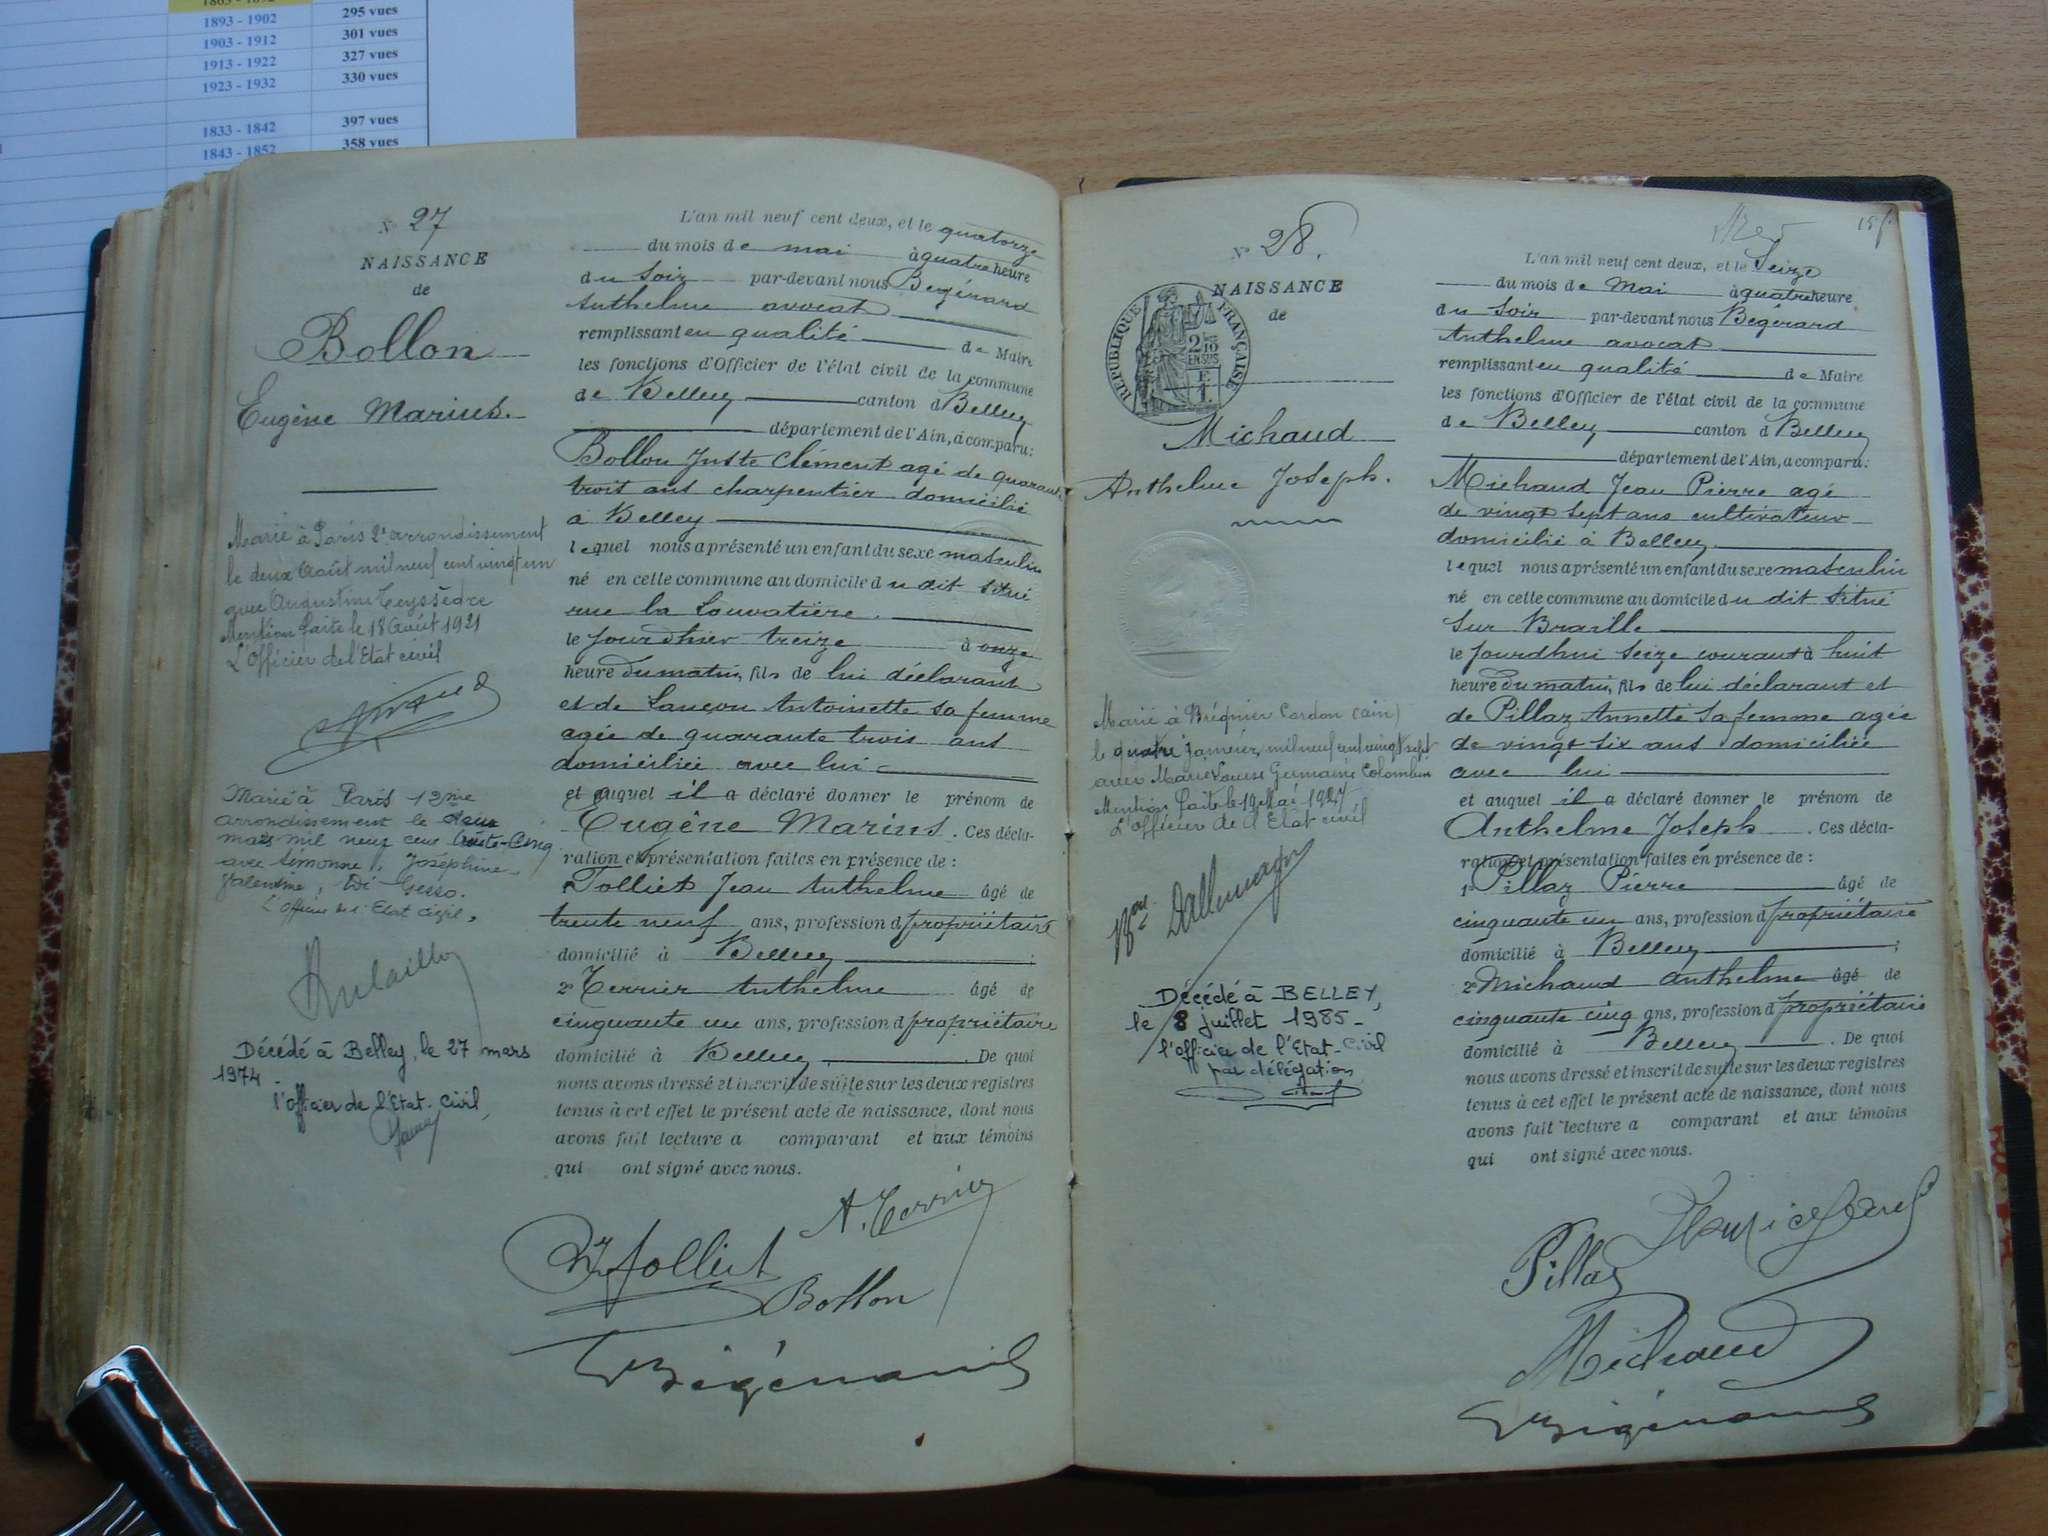 1893 - 1902 295 vues
1903 - 1912 301 vues
1913 - 1922 327 vues
1923 - 1932 330 vues
1833 - 1842 397 vues
1843 - 1852 358 vues
N° 27
NAISSANCE
de
Bollon
Eugène Marius.
Marié à Paris 2e arrondissement
le deux Août mil neuf cent vingt un
avec Augustine Teyssèdre
Mention faite le 18 Août 1921
L'Officier de l'Etat civil
Marié à Paris 12me
arrondissement le deux
mars mil neuf cent trente-cinq
avec Simonne, Joséphine,
Valentine, Di Gesso.
L'Officier de l'Etat Civil,
Décédé à Belley, le 27 mars
1974
l'officier de l'Etat-Civil,
L'an mil neuf cent deux, et le quatorze
du mois de mai à quatre heure
du soir par-devant nous Bégérard
Anthelme avocat
remplissant en qualité de Maire
les fonctions d'Officier de l'état civil de la commune
de Belley canton d Belley
département de l'Ain, a comparu:
Bollon Juste Clément agé de quarante
trois ans charpentier domicilié
à Belley
lequel nous a présenté un enfant du sexe masculin
né en cette commune au domicile du dit situé
rue la Louvatière.
le jourdhier treize à onze
heure du matin, fils de lui déclarant
et de Lançon Antoinette sa femme
agée de quarante trois ans
domiciliée avec lui
et auquel il a déclaré donner le prénom de
Eugène Marius. Ces décla-
ration et présentation faites en présence de :
1° Tolliet Jean Anthelme âgé de
trente neuf ans, profession d propriétaire
domicilié à Belley ;
2° Terrier Anthelme âgé de
cinquante un ans, profession d propriétaire
domicilié à Belley . De quoi
nous avons dressé et inscrit de suite sur les deux registres
tenus à cet effet le présent acte de naissance, dont nous
avons fait lecture a comparant et aux témoins
qui ont signé avec nous.
A. Terrier
Tolliet
Bollon
Bégérard
N° 28.
NAISSANCE
de
RÉPUBLIQUE FRANÇAISE
2/10
EN SUS
Michaud
Anthelme Joseph.
Marié à Brégnier Cordon (ain)
le quatre Janvier mil neuf cent vingt sept
avec Marie Louise Germaine Colombin
Mention faite le 19 Mai 1927
L'officier de l'Etat civil
Décédé à BELLEY,
le 8 juillet 1985 -
l'officier de l'Etat-Civil
par délégation
L'an mil neuf cent deux, et le Seize
du mois de Mai à quatre heure
du soir par-devant nous Bégérard
Anthelme avocat
remplissant en qualité de Maire
les fonctions d'Officier de l'état civil de la commune
de Belley canton d Belley
département de l'Ain, a comparu:
Michaud Jean Pierre agé
de vingt sept ans cultivateur
domicilié à Belley
lequel nous a présenté un enfant du sexe masculin
né en cette commune au domicile du dit situé
sur Braille
le jourdhui seize courant à huit
heure du matin, fils de lui déclarant et
de Pillaz Annette sa femme agée
de vingt six ans domiciliée
avec lui
et auquel il a déclaré donner le prénom de
Anthelme Joseph . Ces décla-
ration et présentation faites en présence de :
1° Pillaz Pierre âgé de
cinquante un ans, profession d propriétaire
domicilié à Belley ;
2° Michaud Anthelme âgé de
cinquante cinq ans, profession d propriétaire
domicilié à Belley . De quoi
nous avons dressé et inscrit de suite sur les deux registres
tenus à cet effet le présent acte de naissance, dont nous
avons fait lecture a comparant et aux témoins
qui ont signé avec nous.
Pillaz
Michaud
Bégérard